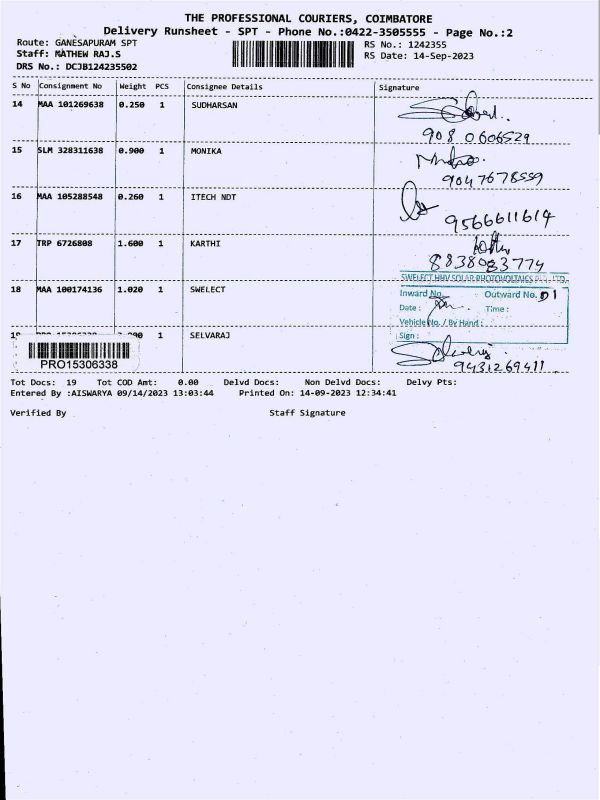 THE PROFESSIONAL COURIERS, COIMBATORE
Delivery Runsheet - SPT - Phone No.:0422-3505555 - Page No.:2
Route: GANESAPURAM SPT
RS No.: 1242355
Staff: MATHEW RAJ.S
RS Date: 14-Sep-2023
DRS No.: DCJB124235502
S No Consignment No Weight PCS Consignee Details Signature
14 MAA 101269638 0.250 1 SUDHARSAN
9080606529
15 SLM 328311638 0.900 1 MONIKA
9047678559
16 MAA 105288548 0.260 1 ITECH NDT
9566611614
17 TRP 6726808 1.600 1 KARTHI
8838083774
SWELECT HHV SOLAR PHOTOVOLTAICS PVT. LTD.
18 MAA 100174136 1.020 1 SWELECT
Inward No. Outward No. D1
Date : Time :
Vehicle No. / By Hand :
Sign :
19 1 SELVARAJ
PRO15306338
9431269411
Tot Docs: 19 Tot COD Amt: 0.00 Delvd Docs: Non Delvd Docs: Delvy Pts:
Entered By :AISWARYA 09/14/2023 13:03:44 Printed On: 14-09-2023 12:34:41
Verified By Staff Signature